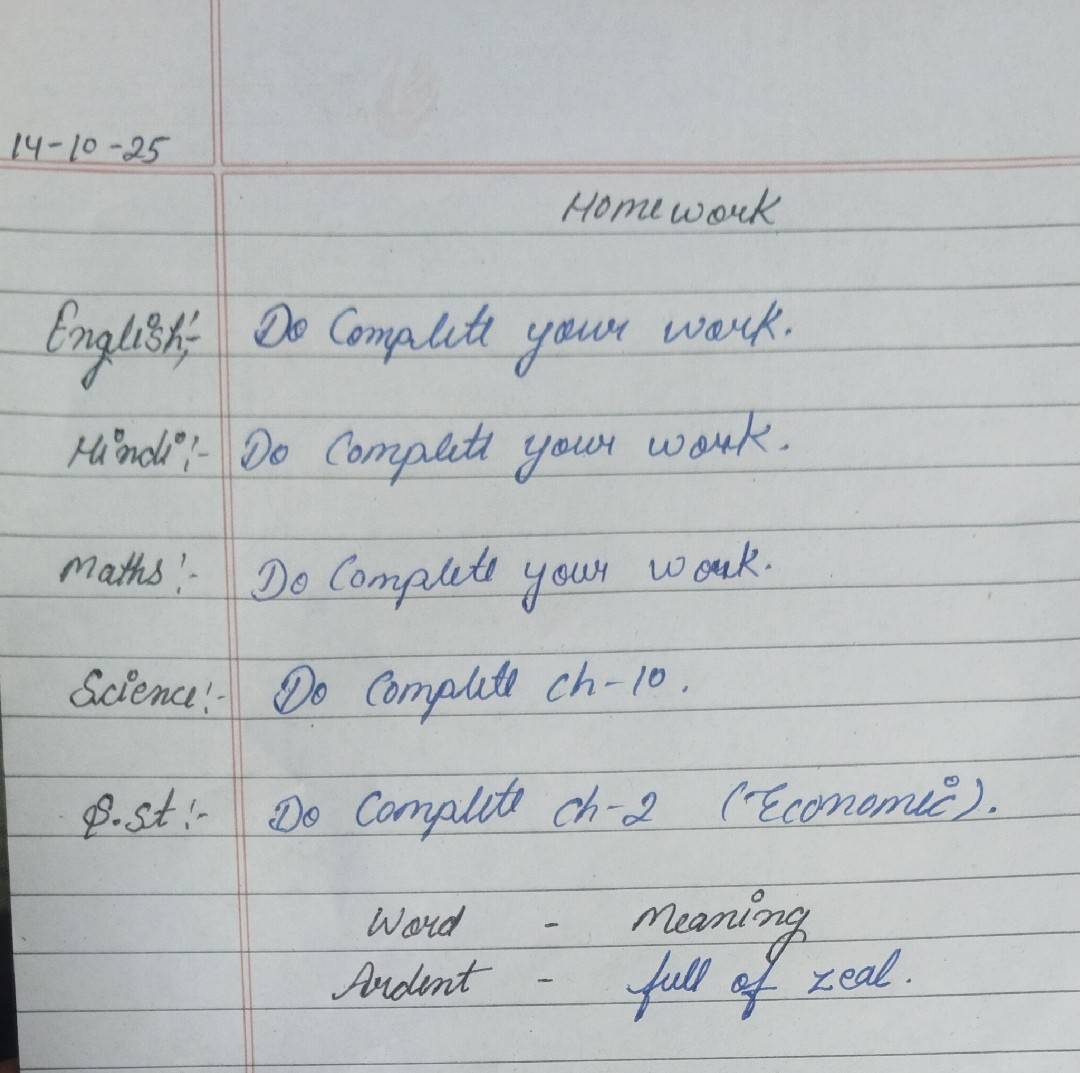 14-10-25
Homework
English:- Do Complete your work.
Hindi:- Do Complete your work.
Maths:- Do Complete your work.
Science:- Do Complete ch-10.
S.st:- Do Complete ch-2 (Economic).
Word - Meaning
Ardent - full of zeal.